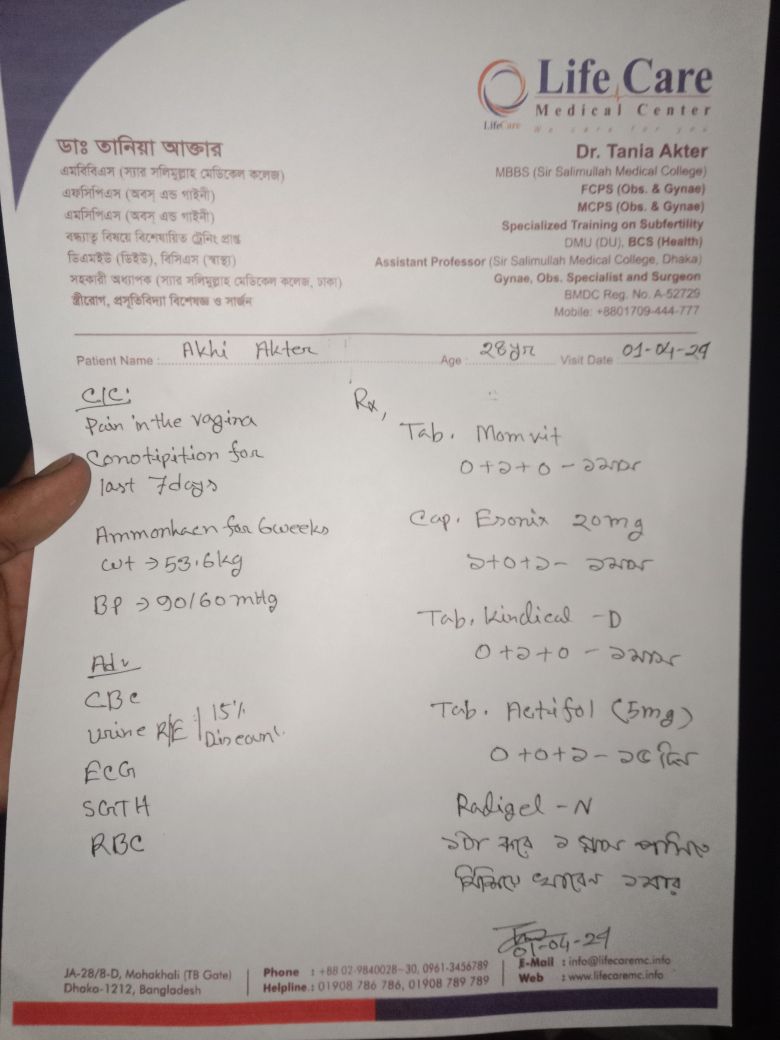 Life Care
Medical Center
LifeCare
We care for you
ডাঃ তানিয়া আক্তার
এমবিবিএস (স্যার সলিমুল্লাহ মেডিকেল কলেজ)
এফসিপিএস (অবস্ এন্ড গাইনী)
এমসিপিএস (অবস্ এন্ড গাইনী)
বন্ধ্যাত্ব বিষয়ে বিশেষায়িত ট্রেনিং প্রাপ্ত
ডিএমইউ (ডিইউ), বিসিএস (স্বাস্থ্য)
সহকারী অধ্যাপক (স্যার সলিমুল্লাহ মেডিকেল কলেজ, ঢাকা)
স্ত্রীরোগ, প্রসূতিবিদ্যা বিশেষজ্ঞ ও সার্জন
Dr. Tania Akter
MBBS (Sir Salimullah Medical College)
FCPS (Obs. & Gynae)
MCPS (Obs. & Gynae)
Specialized Training on Subfertility
DMU (DU), BCS (Health)
Assistant Professor (Sir Salimullah Medical College, Dhaka)
Gynae, Obs. Specialist and Surgeon
BMDC Reg. No. A-52729
Mobile: +8801709-444-777
Patient Name : Akhi Akter Age : 28yr Visit Date : 01-04-24
C/C:
Pain in the vagina
Conotipition for
last 7days
Ammonhaen for 6weeks
wt → 53.6kg
BP → 90/60 mmHg
Adv
CBC
Urine R/E 15%
Discount
ECG
SGTH
RBC
Rx,
Tab. Momvit
০+১+০ - ১মাস
Cap. Esonix 20mg
১+০+১ - ১মাস
Tab. Kindical -D
০+১+০ - ১মাস
Tab. Actifol (5mg)
০+০+১ - ১৫ দিন
Radigel - N
১টা করে ১ গ্লাস পানিতে
মিশিয়ে খাবেন ১বার
01-04-24
JA-28/8-D, Mohakhali (TB Gate)
Dhaka-1212, Bangladesh
Phone : +88 02-9840028-30, 0961-3456789
Helpline : 01908 786 786, 01908 789 789
E-Mail : info@lifecaremc.info
Web : www.lifecaremc.info